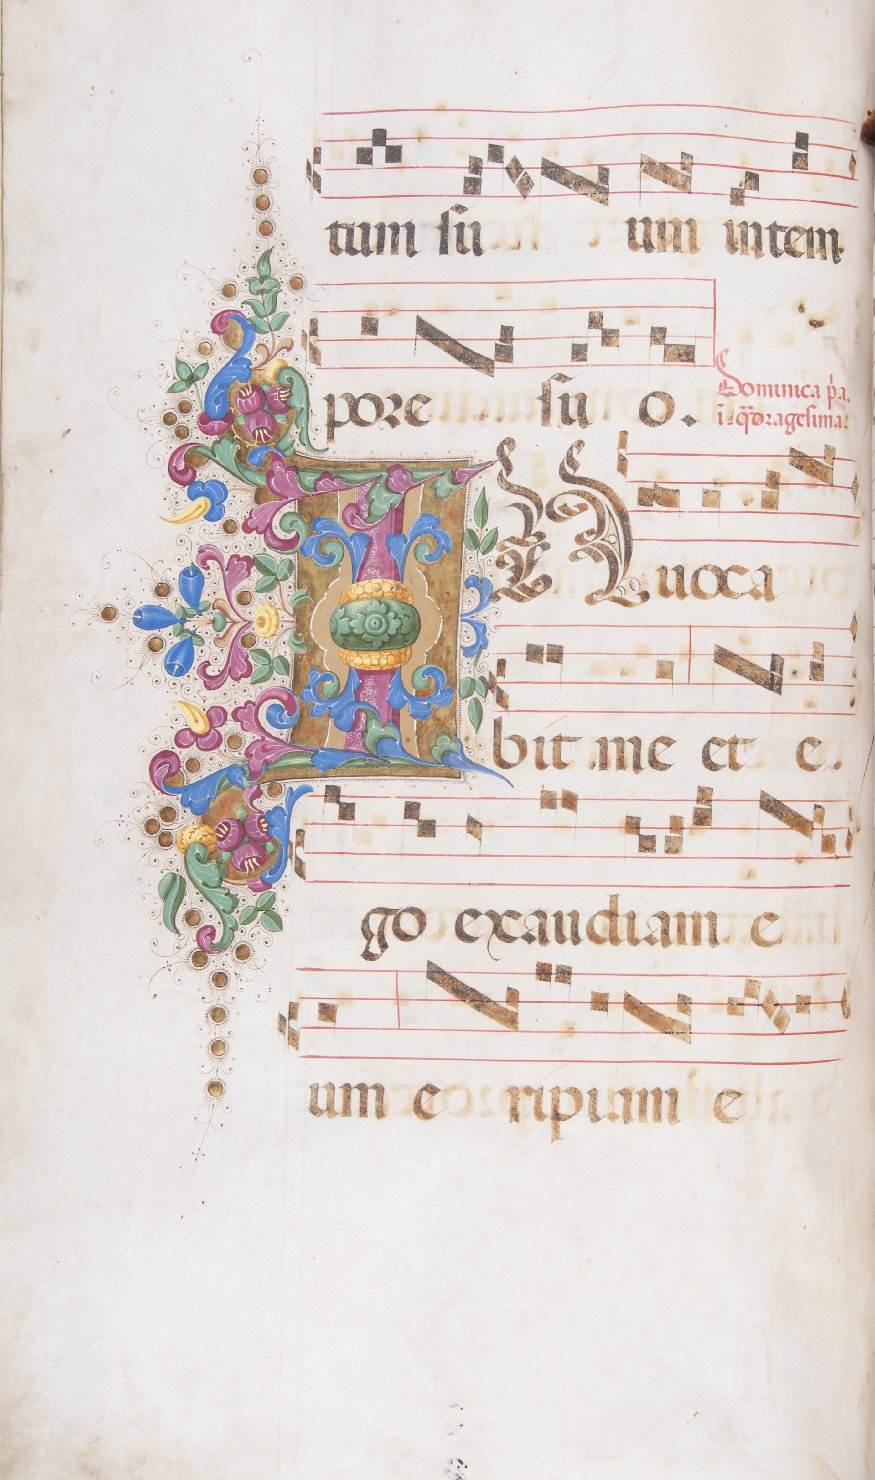 tum su um in tem
pore su o.
Dominica p̄a.
ī q̄dragesima.
INuoca
bit me et e.
go exaudiam e
um e ripiam e